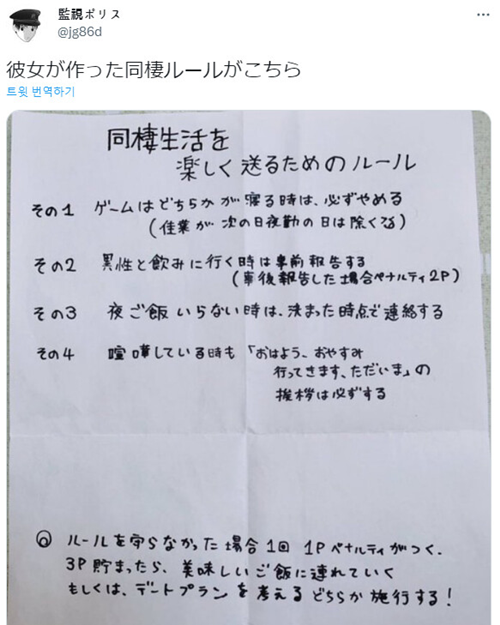 監視ポリス
@jg86d
彼女が作った同棲ルールがこちら
트윗 번역하기
同棲生活を
楽しく送るためのルール
その1 ゲームはどちらかが寝る時は、必ずやめる
(佳業が次の日夜勤の日は除くる)
その2 異性と飲みに行く時は事前報告する
(事後報告した場合ペナルティ2P)
その3 夜ご飯いらない時は、決まった時点で連絡する
その4 喧嘩している時も「おはよう、おやすみ
行ってきます、ただいま」の
挨拶は必ずする
ルールを守らなかった場合1回 1Pペナルティがつく、
3P貯まったら、美味しいご飯に連れていく
もしくは、デートプランを考えるどちらか施行する!